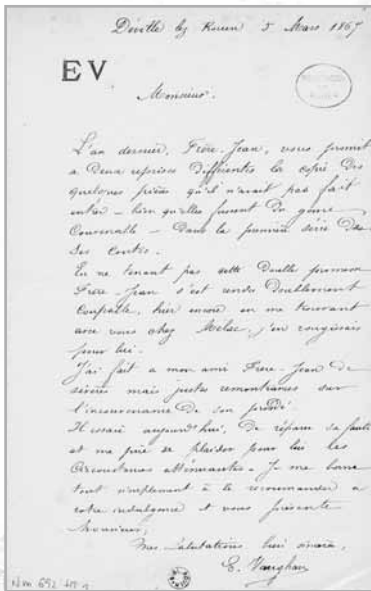 Déville les Rouen 5 Mars 1867
EV
Monsieur.
L'an dernier, Frère-Jean, vous promit
à deux reprises différentes la copie des
quelques pièces qu'il n'avait pas fait
entrer – bien qu'elles fussent du genre
Convenable – dans la première série de
Ses Contes.
En ne tenant pas cette double promesse
Frère-Jean s'est rendu doublement
Coupable, hier encore en me trouvant
avec vous chez j'en rougissais
pour lui.
J'ai fait à mon ami Frère-Jean de
sévères mais justes remontrances sur
l'inconvenance de son procédé.
Il essaie aujourd'hui, de réparer sa faute
et me prie de plaider pour lui les
Circonstances atténuantes. Je me borne
tout simplement à le recommander à
votre indulgence et vous présente
Monsieur,
Mes Salutations bien sincères,
E. Vaughan